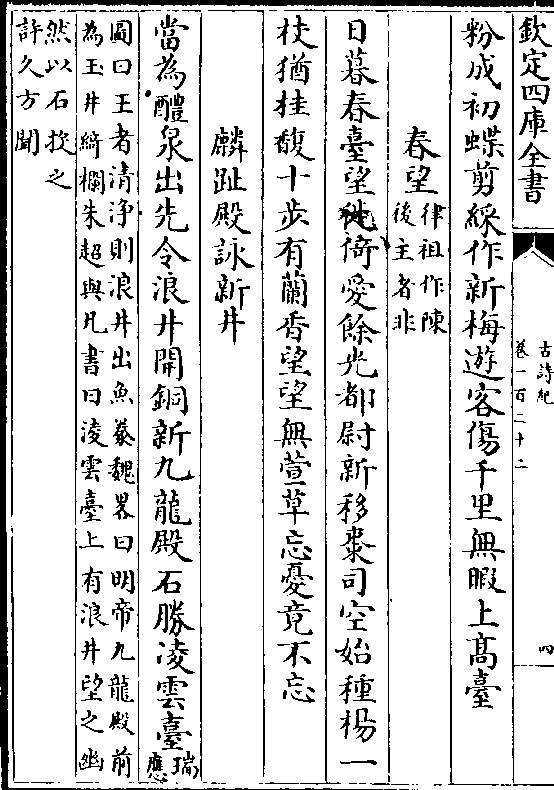 欽定四庫全書
古詩紀
卷一百二十二
四
粉成初蝶剪綵作新梅遊客傷千里無暇上髙臺
春望律祖作陳
後主者非
日暮春臺望徙倚愛餘光都尉新移棗司空始種楊一
枝猶桂馥十步有蘭香望望無萱草忘憂竟不忘
麟趾殿詠新井
當為醴泉出先令浪井開銅新九龍殿石勝凌雲臺瑞
應
圖曰王者清浄則浪井出魚豢魏畧曰明帝九龍殿前
為玉井綺欄朱超與凡書曰淩雲臺上有浪井望之幽
然以石投之
許久方聞